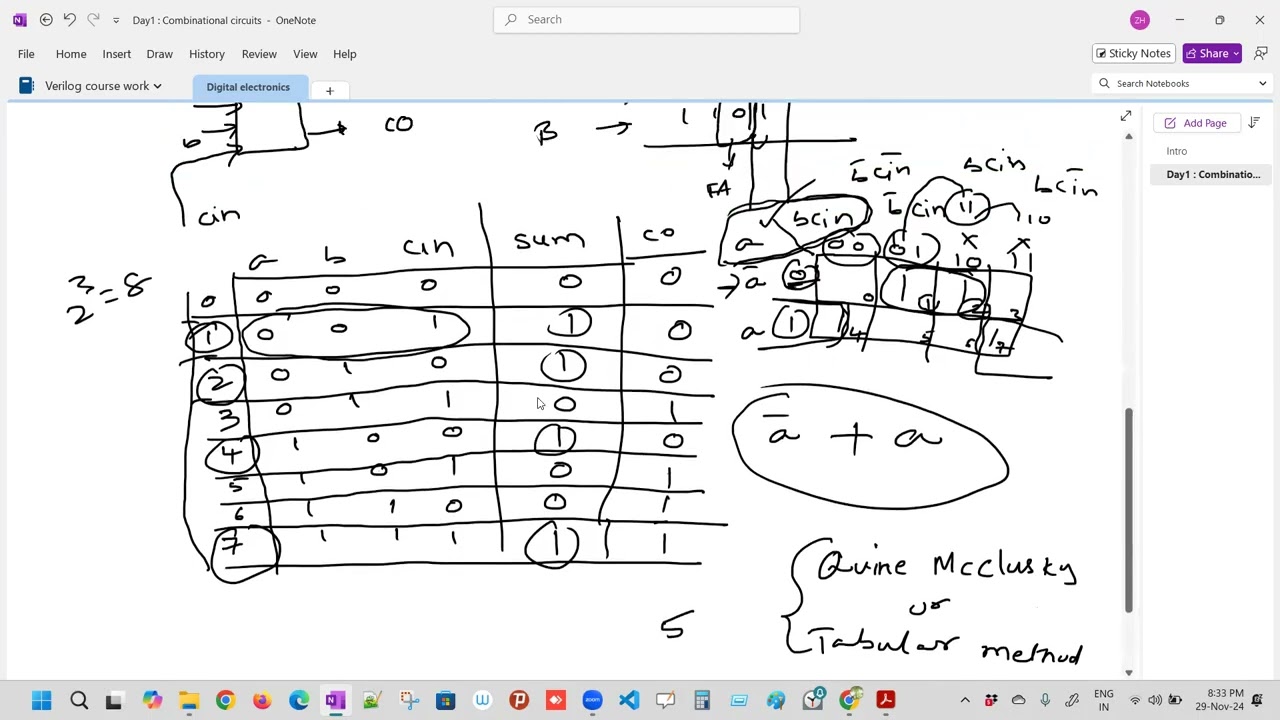 Day1 : Combinational circuits - OneNote
Search
ZH
File Home Insert Draw History Review View Help
Sticky Notes
Share
Verilog course work
Digital electronics
+
Search Notebooks
Add Page
Intro
Day1 : Combinatio...
b
co
cin
B
1 1 0 1
FA
b̄ c̄in
b̄ cin
bcin
bc̄in
11
10
a
bcin
00 01 10 11
x x
ā 0 0 1 1 1 2 3
a 1 1 4 5 6 1 7
2³ = 8
a b cin sum co
0 0 0 0 0 0
1 0 0 1 1 0
2 0 1 0 1 0
3 0 1 1 0 1
4 1 0 0 1 0
5 1 0 1 0 1
6 1 1 0 0 1
7 1 1 1 1 1
ā + a
5
Quine McClusky
or
Tabular method
ENG
IN
8:33 PM
29-Nov-24